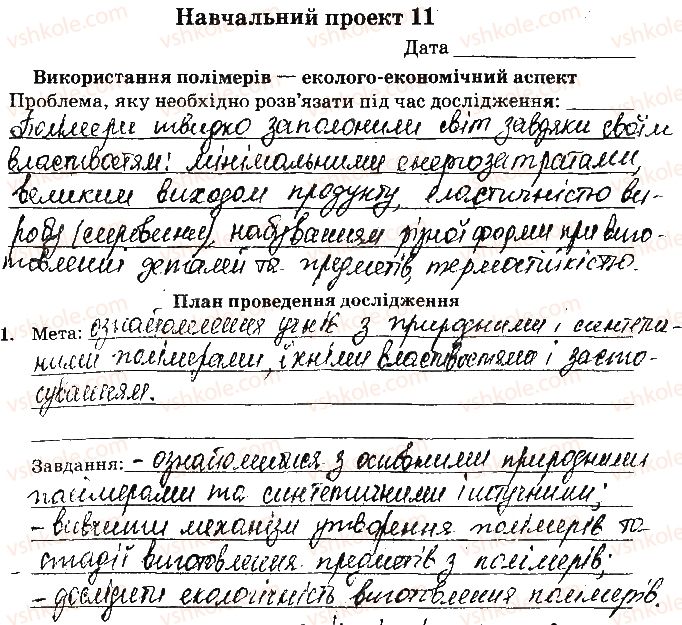 Навчальний проект 11
Дата
Використання полімерів — еколого-економічний аспект
Проблема, яку необхідно розв'язати під час дослідження:
Полімери швидко заполонили світ завдяки своїм
властивостям: мінімальними енергозатратами,
великим виходом продукту, еластичністю ви-
робу (сировини), набуванням різної форми при виго-
товленні деталей та предметів, термостійкістю.
План проведення дослідження
1. Мета: ознайомлення учнів з природними і синтети-
чними полімерами, їхніми властивостями і засто-
суванням.
Завдання: - ознайомитися з основними природними
полімерами та синтетичними і штучними;
- вивчити механізм утворення полімерів та
стадії виготовлення предметів з полімерів;
- дослідити екологічність виготовлення полімерів.